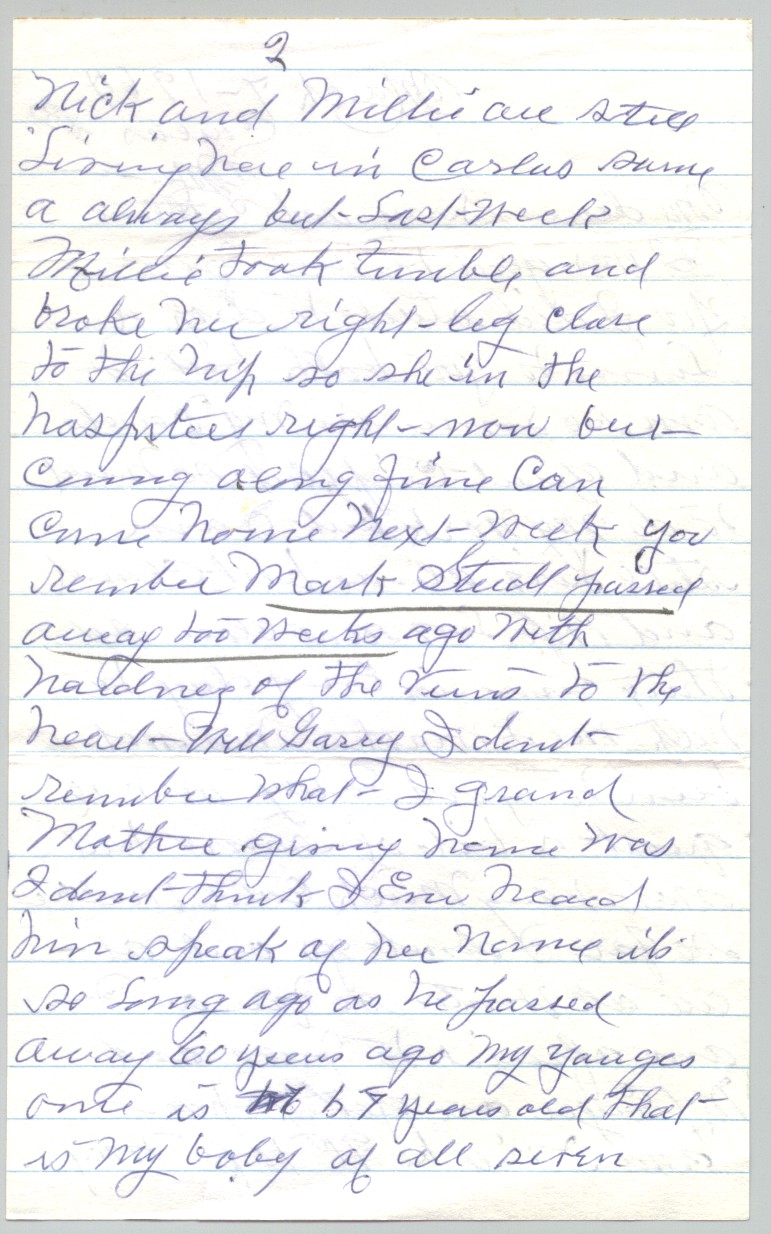 2
Nick and Millie are still
Living here in Carlos same
a always but Last Week
Millie took tumble and
broke her right leg close
to the hip so she in the
right now but
along fine Can
Come home Next Week you
Mark Studl passed
away too weeks ago With
of the to the
head Well Garry I dont
what I grand
Mother giving name was
I dont think I Ever heard
him speak of her Name its
so Long ago as he passed
away 60 years ago My
one is years old that
is My baby of all seven